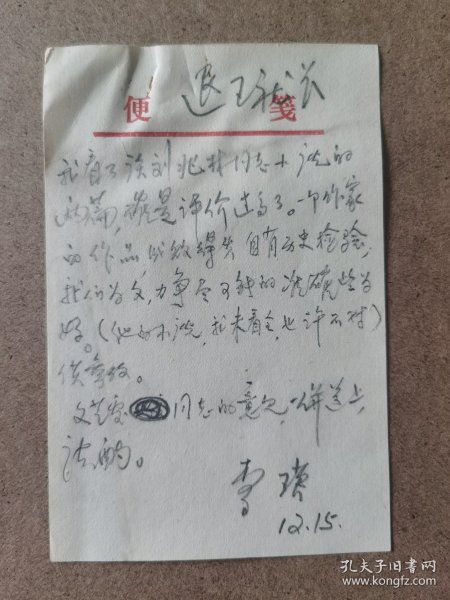 便 笺
退
我看了谈刘兆林同志小说的
这篇,确是评价过高了。一个作家
的作品成败得失自有历史检验,
我们为文,力争尽可能的准确些为
好。(他的小说,我未看全,也许不对)
供参考。
文艺室 同志的意见,一并送上,
请酌。
李瑛
12.15.
孔夫子旧书网
www.kongfz.com